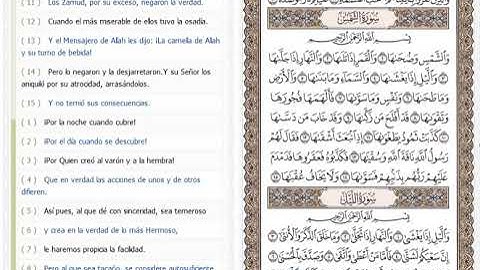 ( 11 ) Los Zamud, por su exceso, negaron la verdad.
( 12 ) Cuando el más miserable de ellos tuvo la osadía.
( 13 ) Y el Mensajero de Allah les dijo: ¡La camella de Allah
y su turno de bebida!
( 14 ) Pero lo negaron y la desjarretaron.Y su Señor los
aniquiló por su atrocidad, arrasándolos.
( 15 ) Y no temió sus consecuencias.
( 1 ) ¡Por la noche cuando cubre!
( 2 ) ¡Por el día cuando se descubre!
( 3 ) ¡Por Quien creó al varón y a la hembra!
( 4 ) Que en verdad las acciones de unos y de otros
difieren.
( 5 ) Así pues, al que dé con sinceridad, sea temeroso
( 6 ) y crea en la verdad de lo más Hermoso,
( 7 ) le haremos propicia la facilidad.
( 8 ) Pero al que sea tacaño, se considere autosuficiente
سورة الشمس
بسم الله الرحمن الرحيم
والشمس وضحىها ١ والقمر إذا تلىها ٢ والنهار إذا جلىها
٣ واليل إذا يغشىها ٤ والسماء وما بنىها ٥ والأرض
وما طحىها ٦ ونفس وما سوىها ٧ فألهمها فجورها
وتقوىها ٨ قد أفلح من زكىها ٩ وقد خاب من دسىها
١٠ كذبت ثمود بطغوىها ١١ إذ انبعث أشقىها ١٢ فقال لهم
رسول الله ناقة الله وسقيها ١٣ فكذبوه فعقروها فدمدم
عليهم ربهم بذنبهم فسوىها ١٤ ولا يخاف عقبها ١٥
سورة الليل
بسم الله الرحمن الرحيم
واليل إذا يغشى ١ والنهار إذا تجلى ٢ وما خلق الذكر والأنثى ٣
إن سعيكم لشتى ٤ فأما من أعطى واتقى ٥ وصدق بالحسنى ٦